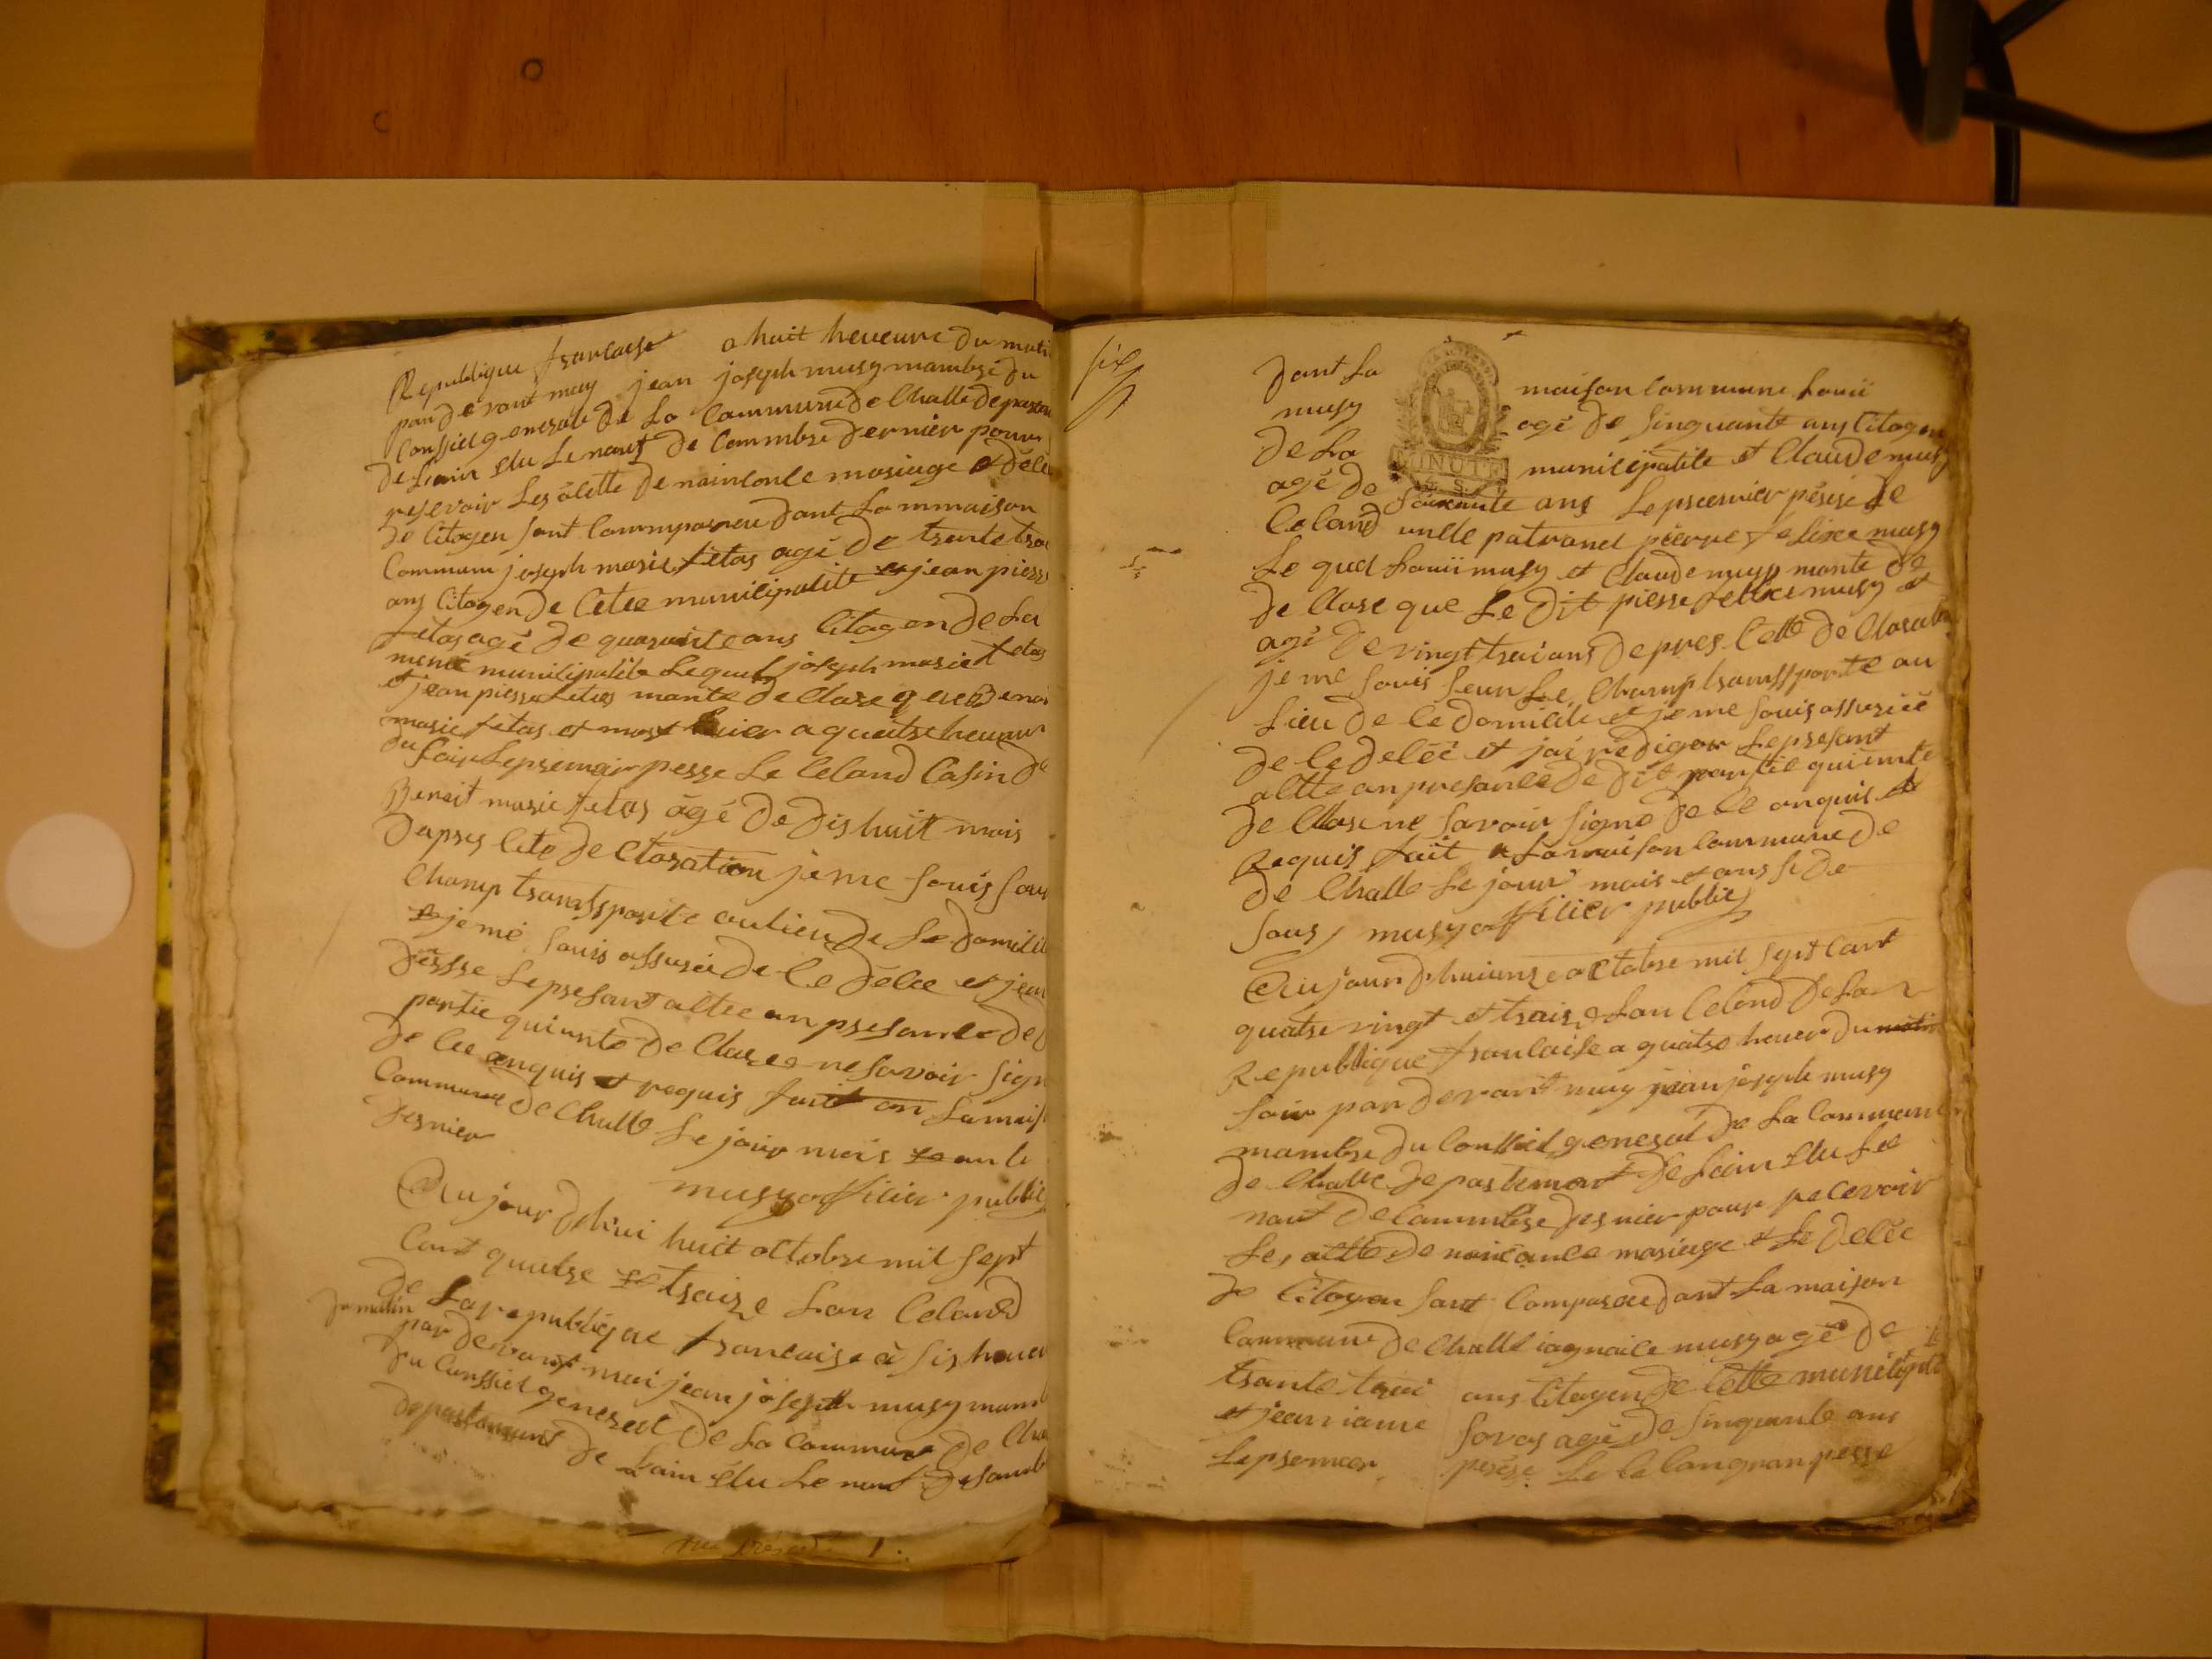 Republique francaise a huit heueure du mati
par devant moy jean joseph musy mambre du
Conssiel general de la Commune de Challe depart
de Lain elu le neuf de Cembre dernier pour
reservoir Les actte de naincence mariage et déle
de Citogen sont Comnposeu dant La mmaison
Commun joseph marie fetas agé de trante troi
ans Citogen de Cetee municipalite et jean pierre
fetas agé de quarante ans Citogen de La
meme municipalite Lequel joseph marie fetas
et jean pierre fetas mante declare que Benoi
marie fetas et mort hier a quatre heueur
du soir Le premeir pesse Le Celand Casin de
Benoit marie fetas ãgé de dis huit mois
dapres Cete declaration je me souis sour
Champ transsporte au lieu de Se domicile
et je me souis assureé de Ce délee et jeur
dresse Le presant attee an presance de
partie qui unte declaree ne savoir sign
de Cee anquis et requis fait an La mais
Commune de Challe Le jour mois et an Le
dernier
musy officier public
Aujour dehui huit octobre mil sept
Cant quatre et traize Lan Celand
de La republique francaise à sis heuer
du matin
par devant moi jean joseph musy mamb
du Conssiel generael de La Commune de Cha
departemant de Lain élu Le neuf desamb
six
dant La maison Commune Louii
musy agé de sinquante ans Citogen
de La municipalite et Claude musy
agé de soixante ans Le preemier pérere de
Celand uncle patranel pierre felixe musy
Le quel Louii musy et Claude musy mante de
de Clare que Le dit pierre felixe musy et
agé de vingt troi ans depres Cette declaration
je me souis seur Le Champ transsporte au
Lieu de Ce domicile et je me souis assurieé
de Ce deleé et jai rediger Le presant
actte an presance de dit partie qui unte
de Clare ne savoir signe de Ce anquis et
Requis fait a La maison Commune de
de Challe Le jour mois et ans si de
sous musy officier public
Aujour dhui unze octobre mil sept Cant
quatre vingt et traize Lan Celond de La
Republique francaise a quatre heuer du matin
soir par devant moy jean joseph musy
mambre du Conssiel general de La Commune
de Challe departemant de Lain elu Le
neuf de Cammbre dernier pour recevoir
Les actte de naicance mariage et Le delée
de Citogen sont Composeu dant La maison
Commune de Challe iagnaice musy agé de
trante troi ans Citogen de Cette municipalit
et jean iame Soras agé de sinquante ans
Le premeer perere Le Celangnan pesse